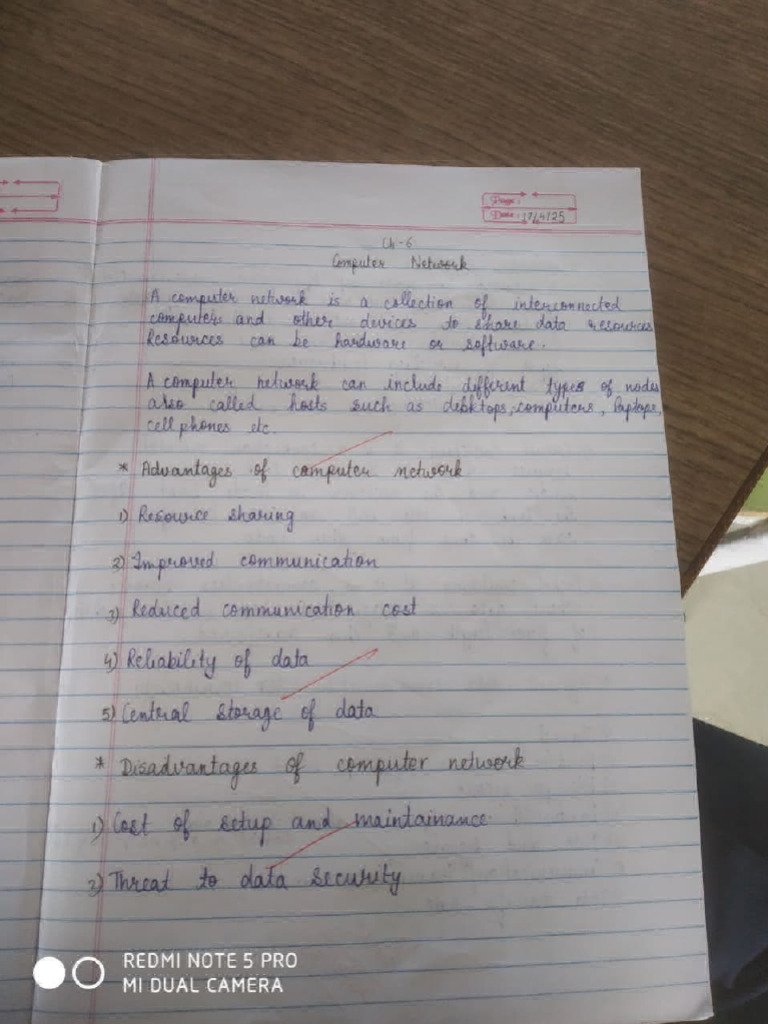 Page :
Date : 17/4/25
Ch-6
Computer Network
A computer network is a collection of interconnected
computers and other devices to share data resources
Resources can be hardware or software.
A computer network can include different types of nodes
also called hosts such as desktops, computers, laptops,
cell phones etc.
* Advantages of computer network
1) Resource sharing
2) Improved communication
3) Reduced communication cost
4) Reliability of data
5) Central storage of data
* Disadvantages of computer network
1) Cost of setup and maintainance
2) Threat to data security
REDMI NOTE 5 PRO
MI DUAL CAMERA